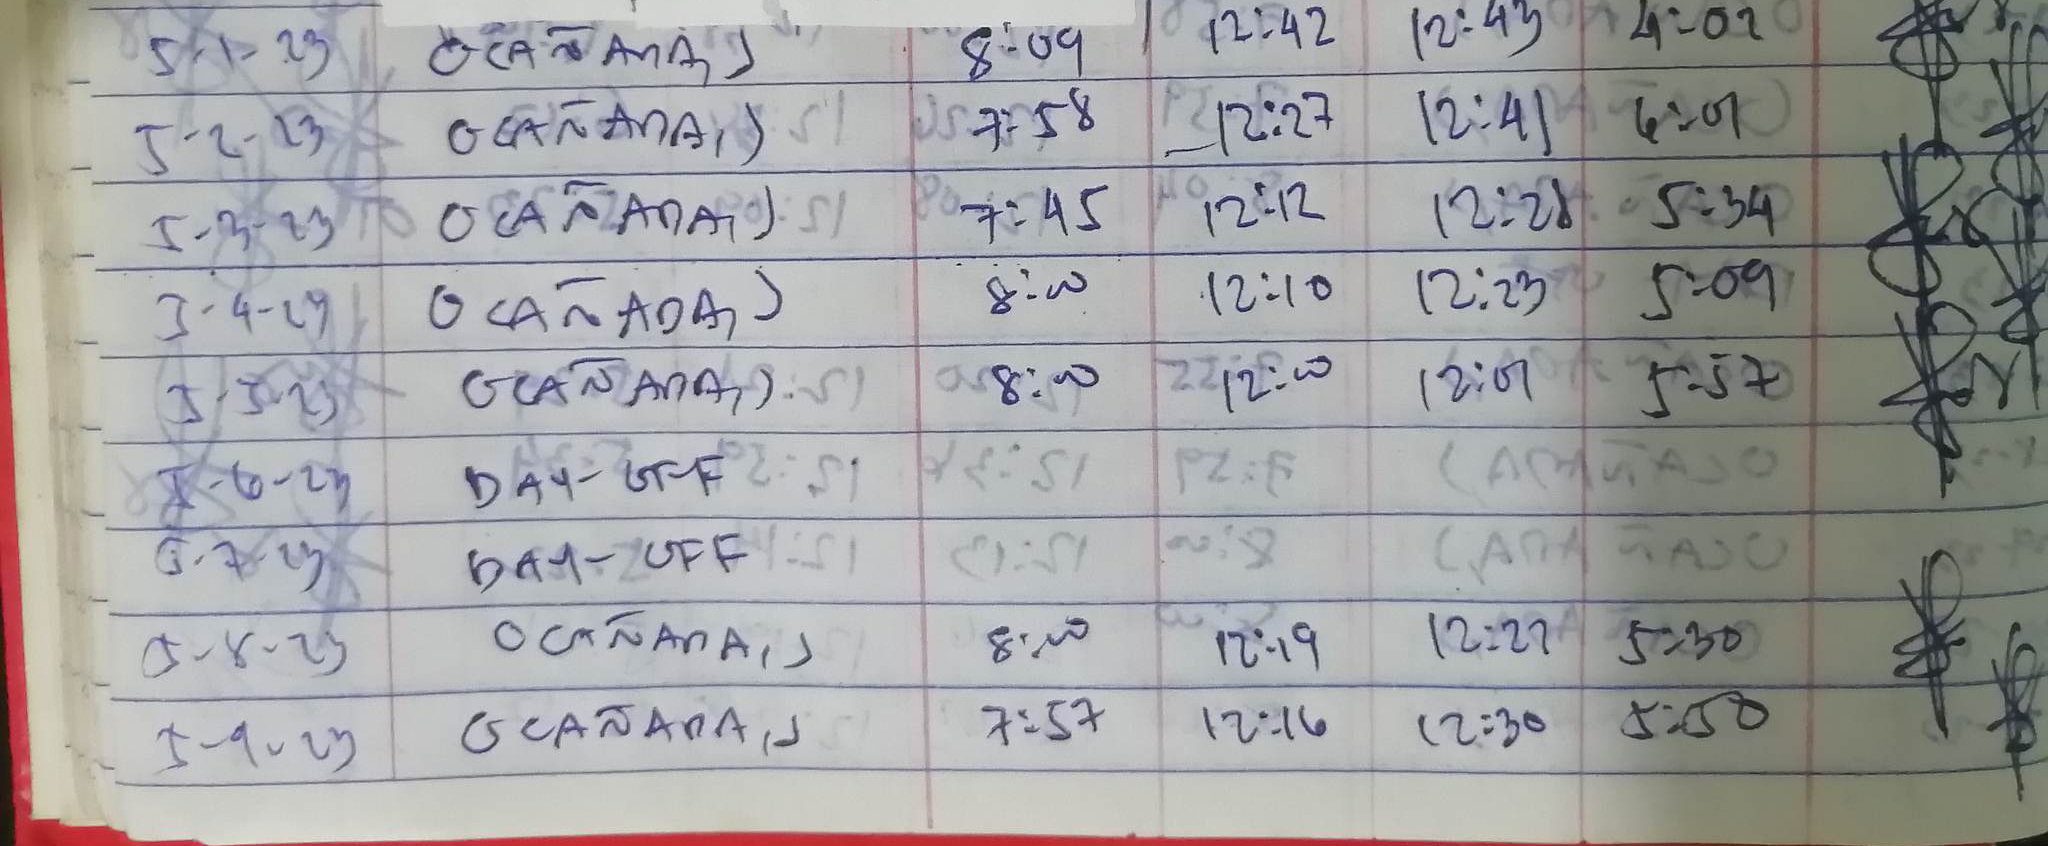 5-1-23 OCAÑADA, J 8:09 12:42 12:43 4:02
5-2-23 OCAÑADA, J 7:58 12:27 12:41 6:01
5-3-23 OCAÑADA, J 7:45 12:12 12:28 5:34
5-4-23 OCAÑADA, J 8:00 12:10 12:23 5:09
5-5-23 OCAÑADA, J 8:00 12:00 12:01 5:57
5-6-23 DAY-OFF
5-7-23 DAY-OFF
5-8-23 OCAÑADA, J 8:00 12:19 12:27 5:30
5-9-23 OCAÑADA, J 7:57 12:16 12:30 5:50